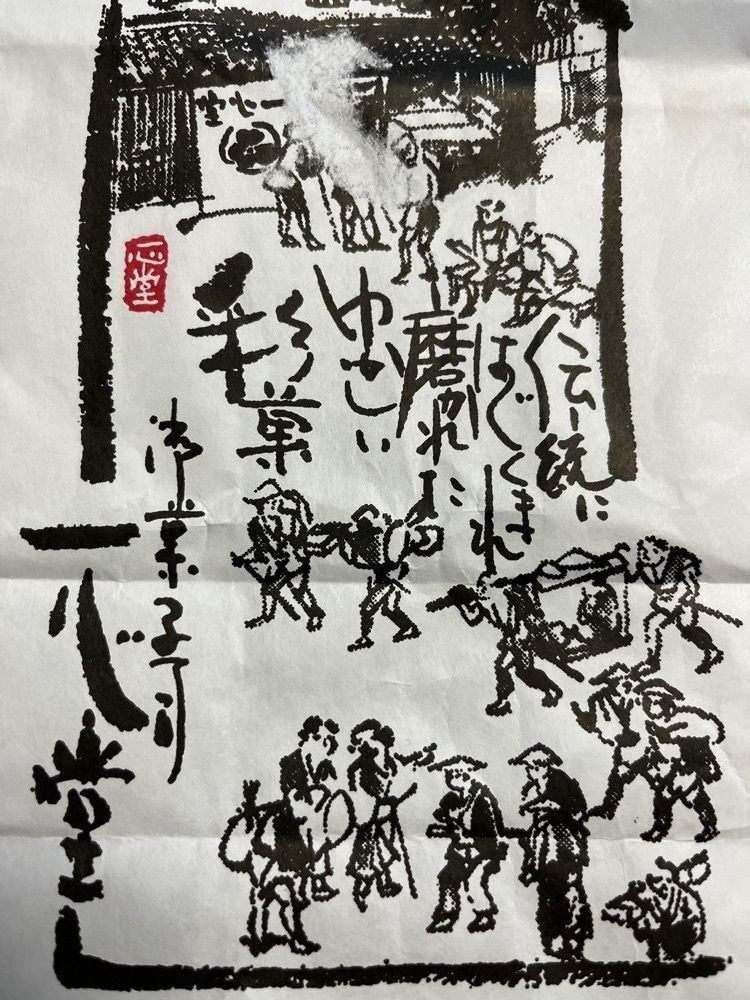 一心堂
伝統に
はぐくまれ
磨かれた
ゆかしい
彩菓
一心堂
御菓子司
一心堂